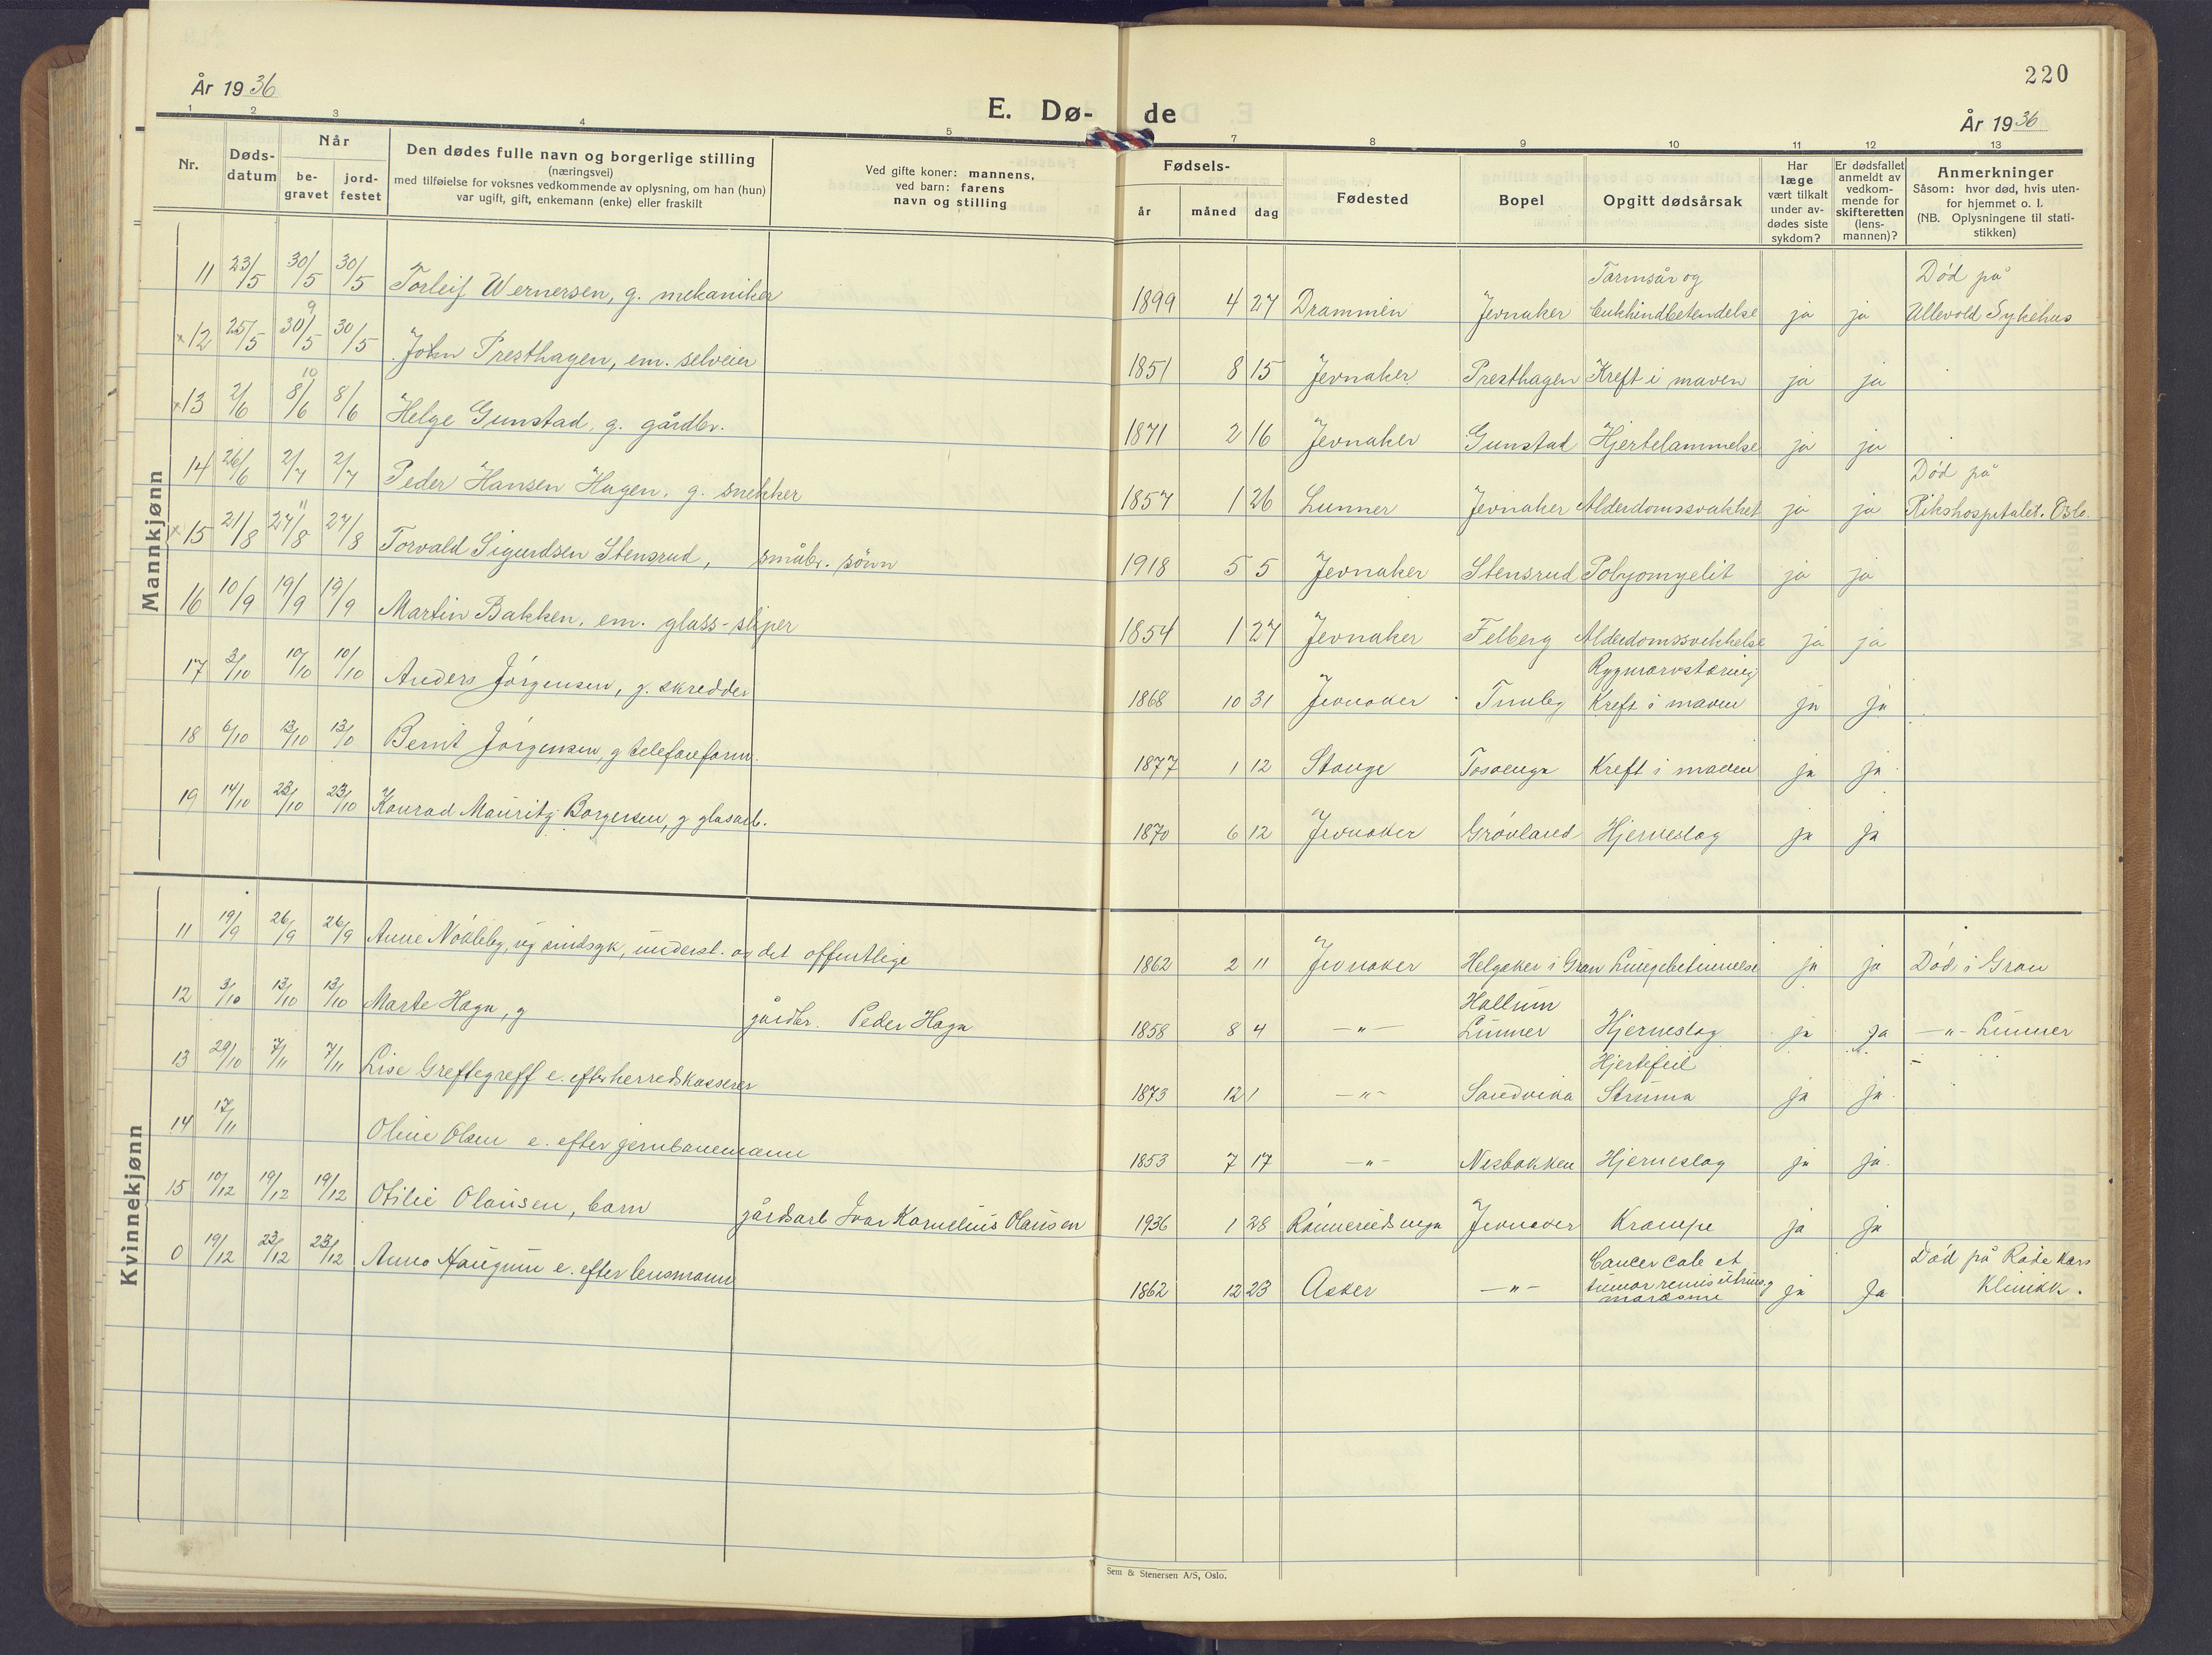 220
År 1936
E. Dø-de
År 1936
1 2 3 4 5 7 8 9 10 11 12 13
Nr.
Døds-
datum
Når
be-
gravet
jord-
festet
Den dødes fulle navn og borgerlige stilling
(næringsvei)
med tilføielse for voksnes vedkommende av oplysning, om han (hun)
var ugift, gift, enkemann (enke) eller fraskilt
Ved gifte koner: mannens,
ved barn: farens
navn og stilling
Fødsels-
år måned dag
Fødested
Bopel
Opgitt dødsårsak
Har
læge
vært tilkalt
under av-
dødes siste
sykdom?
Er dødsfallet
anmeldt av
vedkom-
mende for
skifteretten
(lens-
mannen)?
Anmerkninger
Såsom: hvor død, hvis uten-
for hjemmet o. l.
(NB. Oplysningene til stati-
stikken)
Mannkjønn
Tarmsår og Død på
11 23/5 30/5 30/5 Torleif Wernersen, g. mekaniker 1899 4 27 Drammen Jevnaker bukhindbetendelse ja ja Ullevold Sykehus
9
×12 25/5 30/5 30/5 John Presthagen, em. selveier 1851 8 15 Jevnaker Presthagen Kreft i maven ja ja
10
×13 2/6 8/6 8/6 Helge Gunstad, g. gårdbr. 1871 2 16 Jevnaker Gunstad Hjertelammelse ja ja
Død på
14 26/6 2/7 2/7 Peder Hansen Hagen, g. snekker 1857 1 26 Lunner Jevnaker Alderdomssvakhet ja ja Rikshospitalet. Oslo.
11
×15 21/8 27/8 27/8 Torvald Sigurdsen Stensrud, småbr. sönn 1918 5 5 Jevnaker Stensrud Polyomyelit ja ja
16 10/9 19/9 19/9 Martin Bakken, em. glass-sliper 1854 1 27 Jevnaker Felberg Alderdomssvekkelse ja ja
Rygmarvstæring
17 3/10 10/10 10/10 Anders Jörgensen, g. skredder 1868 10 31 Jevnaker Kreft i maven ja ja
18 6/10 13/10 13/10 Bernt Jörgensen, g telefonform. 1877 1 12 Stange Tosoenga Kreft i maven ja ja
19 14/10 23/10 23/10 Konrad Mauritz Borgersen, g glasarb. 1870 6 12 Jevnaker Grövland Hjerneslag ja ja
Kvinnekjønn
11 19/9 26/9 26/9 Anne Nökleby, ug sindsyk, underst. av det offentlige 1862 2 11 Jevnaker Helgaker i Gran Lungebetennelse ja ja Död i Gran
Hallum
12 3/10 13/10 13/10 Marte Haga, g gårdbr. Peder Haga 1858 8 4 —"— Lunner Hjerneslag ja ja —"— Lunner
Hjertefeil
13 29/10 7/11 7/11 Lise Greftegreff e. efter herredskasserer 1873 12 1 —"— Sandvika Struma ja ja
14 17/11 Oline Olsen e. efter jernbanemann 1853 7 17 —"— Nesbakken Hjerneslag ja ja
15 10/12 19/12 19/12 Otilie Olausen, barn gårdsarb Ivar Kornelius Olausen 1936 1 28 Jevnaker Krampe ja ja
Cancer Død på Röde Kors
0 19/12 23/12 23/12 Anna Haugum e. efter lensmann 1862 12 23 Asker —"— tumor ja ja Klinikk.
marasme
Sem & Stenersen A/S, Oslo.